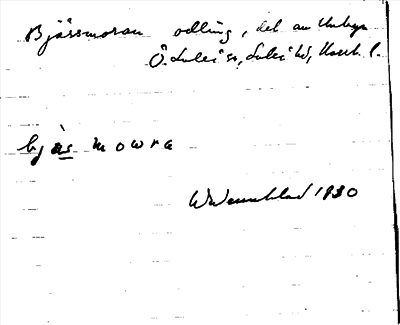 Bjässmoran odling, del av Unbyn
Ö. Luleå sn, Luleå hd, Norrb. l.
bjäs mowra
Wennblad 1930